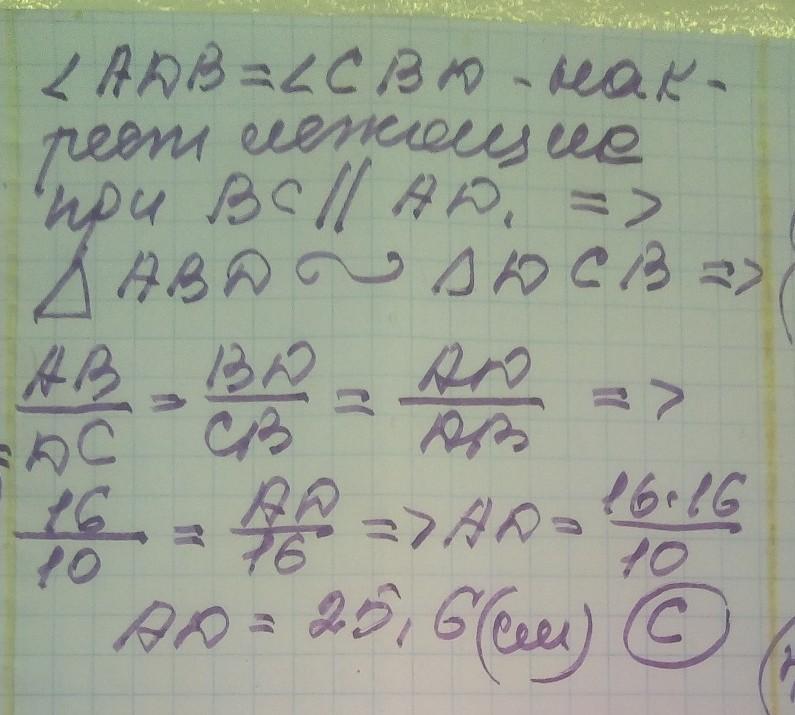 ∠ADB=∠CBD - нак-
рест лежащие
при BC || AD, =>
△ABD ∼ △DCB =>
AB/DC = BD/CB = AD/DB =>
16/10 = AD/16 => AD = 16·16/10
AD = 25,6 (см) C